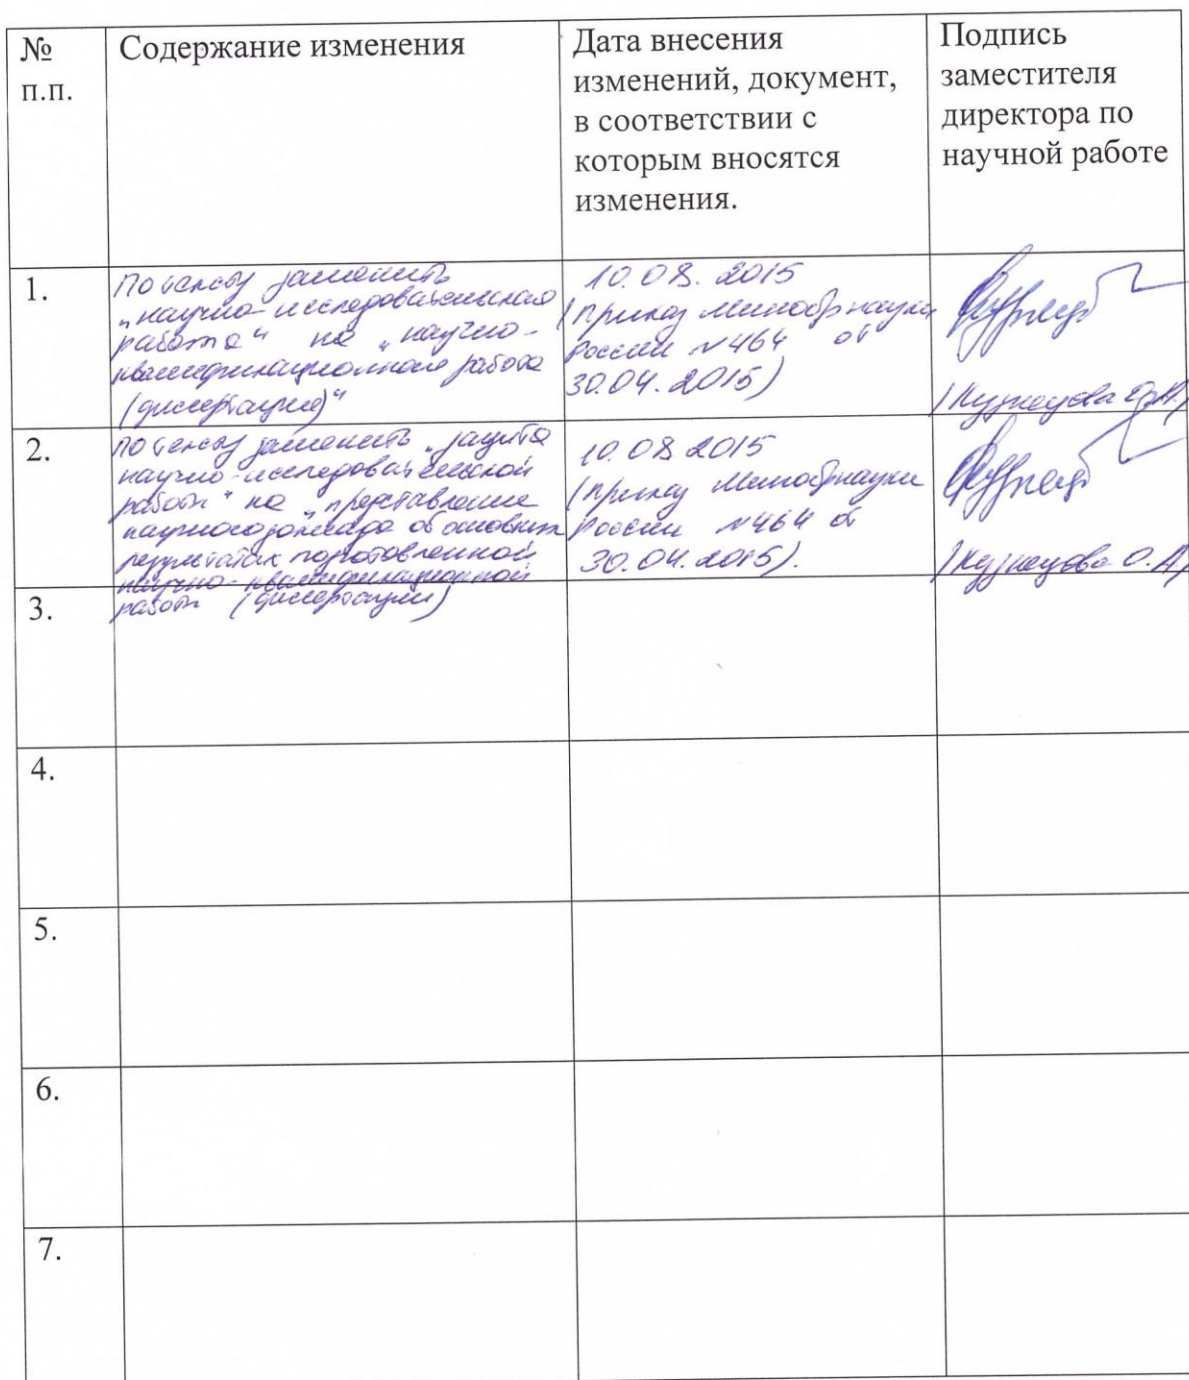 №
п.п.
Содержание изменения
Дата внесения
изменений, документ,
в соответствии с
которым вносятся
изменения.
Подпись
заместителя
директора по
научной работе
1.
По тексту заменить
„научно-исследовательская
работа“ на „научно-
квалификационная работа
(диссертация)“
10.08.2015
(приказ Минобрнауки
России №464 от
30.04.2015)
/Кузнецова О.А./
2.
По тексту заменить „защита
научно-исследовательской
работы“ на „представление
научного доклада об основных
результатах подготовленной
научно-квалификационной
работы (диссертации)
10.08.2015
(приказ Минобрнауки
России №464 от
30.04.2015).
/Кузнецова О.А/
3.
4.
5.
6.
7.